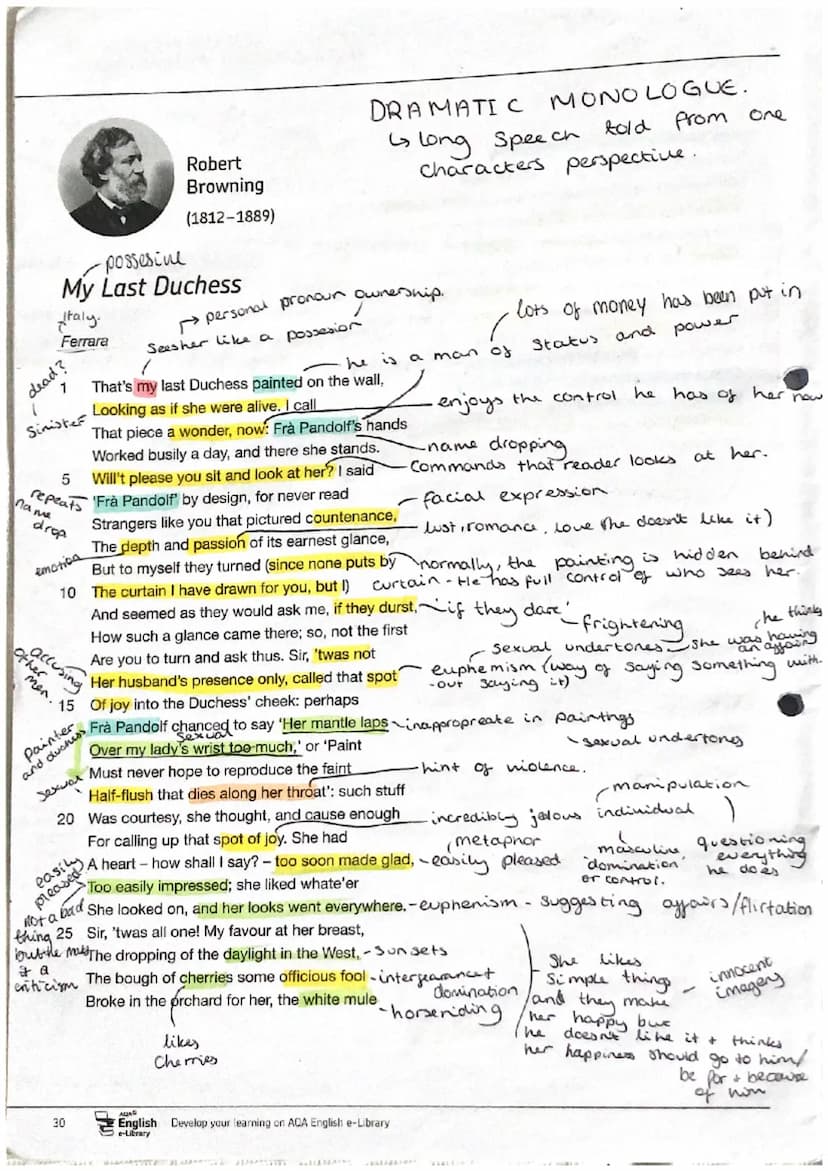 DRAMATIC MONOLOGUE.
↳ long speech told from one
characters perspective.
Robert
Browning
(1812–1889)
possesive
My Last Duchess
Italy.
↱ personal pronoun ownership.
Ferrara
Seesher like a possesion
lots of money has been put in
he is a man of status and power
dead?
sinister
1 That's my last Duchess painted on the wall,
Looking as if she were alive. I call
enjoys the control he has of her now
That piece a wonder, now: Frà Pandolf's hands
Worked busily a day, and there she stands.
name dropping
5 Will't please you sit and look at her? I said
Commands that reader looks at her.
repeats
name
drop
'Frà Pandolf' by design, for never read
facial expression
Strangers like you that pictured countenance,
lust, romance, love (he doesn't like it)
The depth and passion of its earnest glance,
emotion
But to myself they turned (since none puts by
normally, the painting is hidden behind
10 The curtain I have drawn for you, but I)
curtain - He has full control of who sees her.
And seemed as they would ask me, if they durst,
'if they dare'
frightening
How such a glance came there; so, not the first
he thinks
she was having
an affair
Are you to turn and ask thus. Sir, 'twas not
sexual undertones
accusing
other
men.
Her husband's presence only, called that spot
euphemism (way of saying something with
-out saying it)
15 Of joy into the Duchess' cheek: perhaps
Frà Pandolf chanced to say 'Her mantle laps
inappropreate in paintings
Painter
and duchess
sexual
Over my lady's wrist too much,' or 'Paint
sexual undertones
Must never hope to reproduce the faint
hint of violence.
sexual
Half-flush that dies along her throat': such stuff
manipulation
20 Was courtesy, she thought, and cause enough
incredibly jelous individual
For calling up that spot of joy. She had
metaphor
masculine
'domination'
or control.
questioning
everything
he does
A heart – how shall I say? – too soon made glad,
easily pleased
easily
pleased
Too easily impressed; she liked whate'er
She looked on, and her looks went everywhere.
-euphenism - suggesting affairs/flirtation
not a bad
thing
but he makes
it a
criticism
25 Sir, 'twas all one! My favour at her breast,
The dropping of the daylight in the West,
- sunsets
The bough of cherries some officious fool
domination
Broke in the orchard for her, the white mule
- horseriding
likes
Cherries
She likes
simple things
and they make
her happy but
he doesn't like it + thinks
her happiness should go to him/
be for + because
of him
innocent
imagery
30
AQA
English
e-Library
Develop your learning on AQA English e-Library